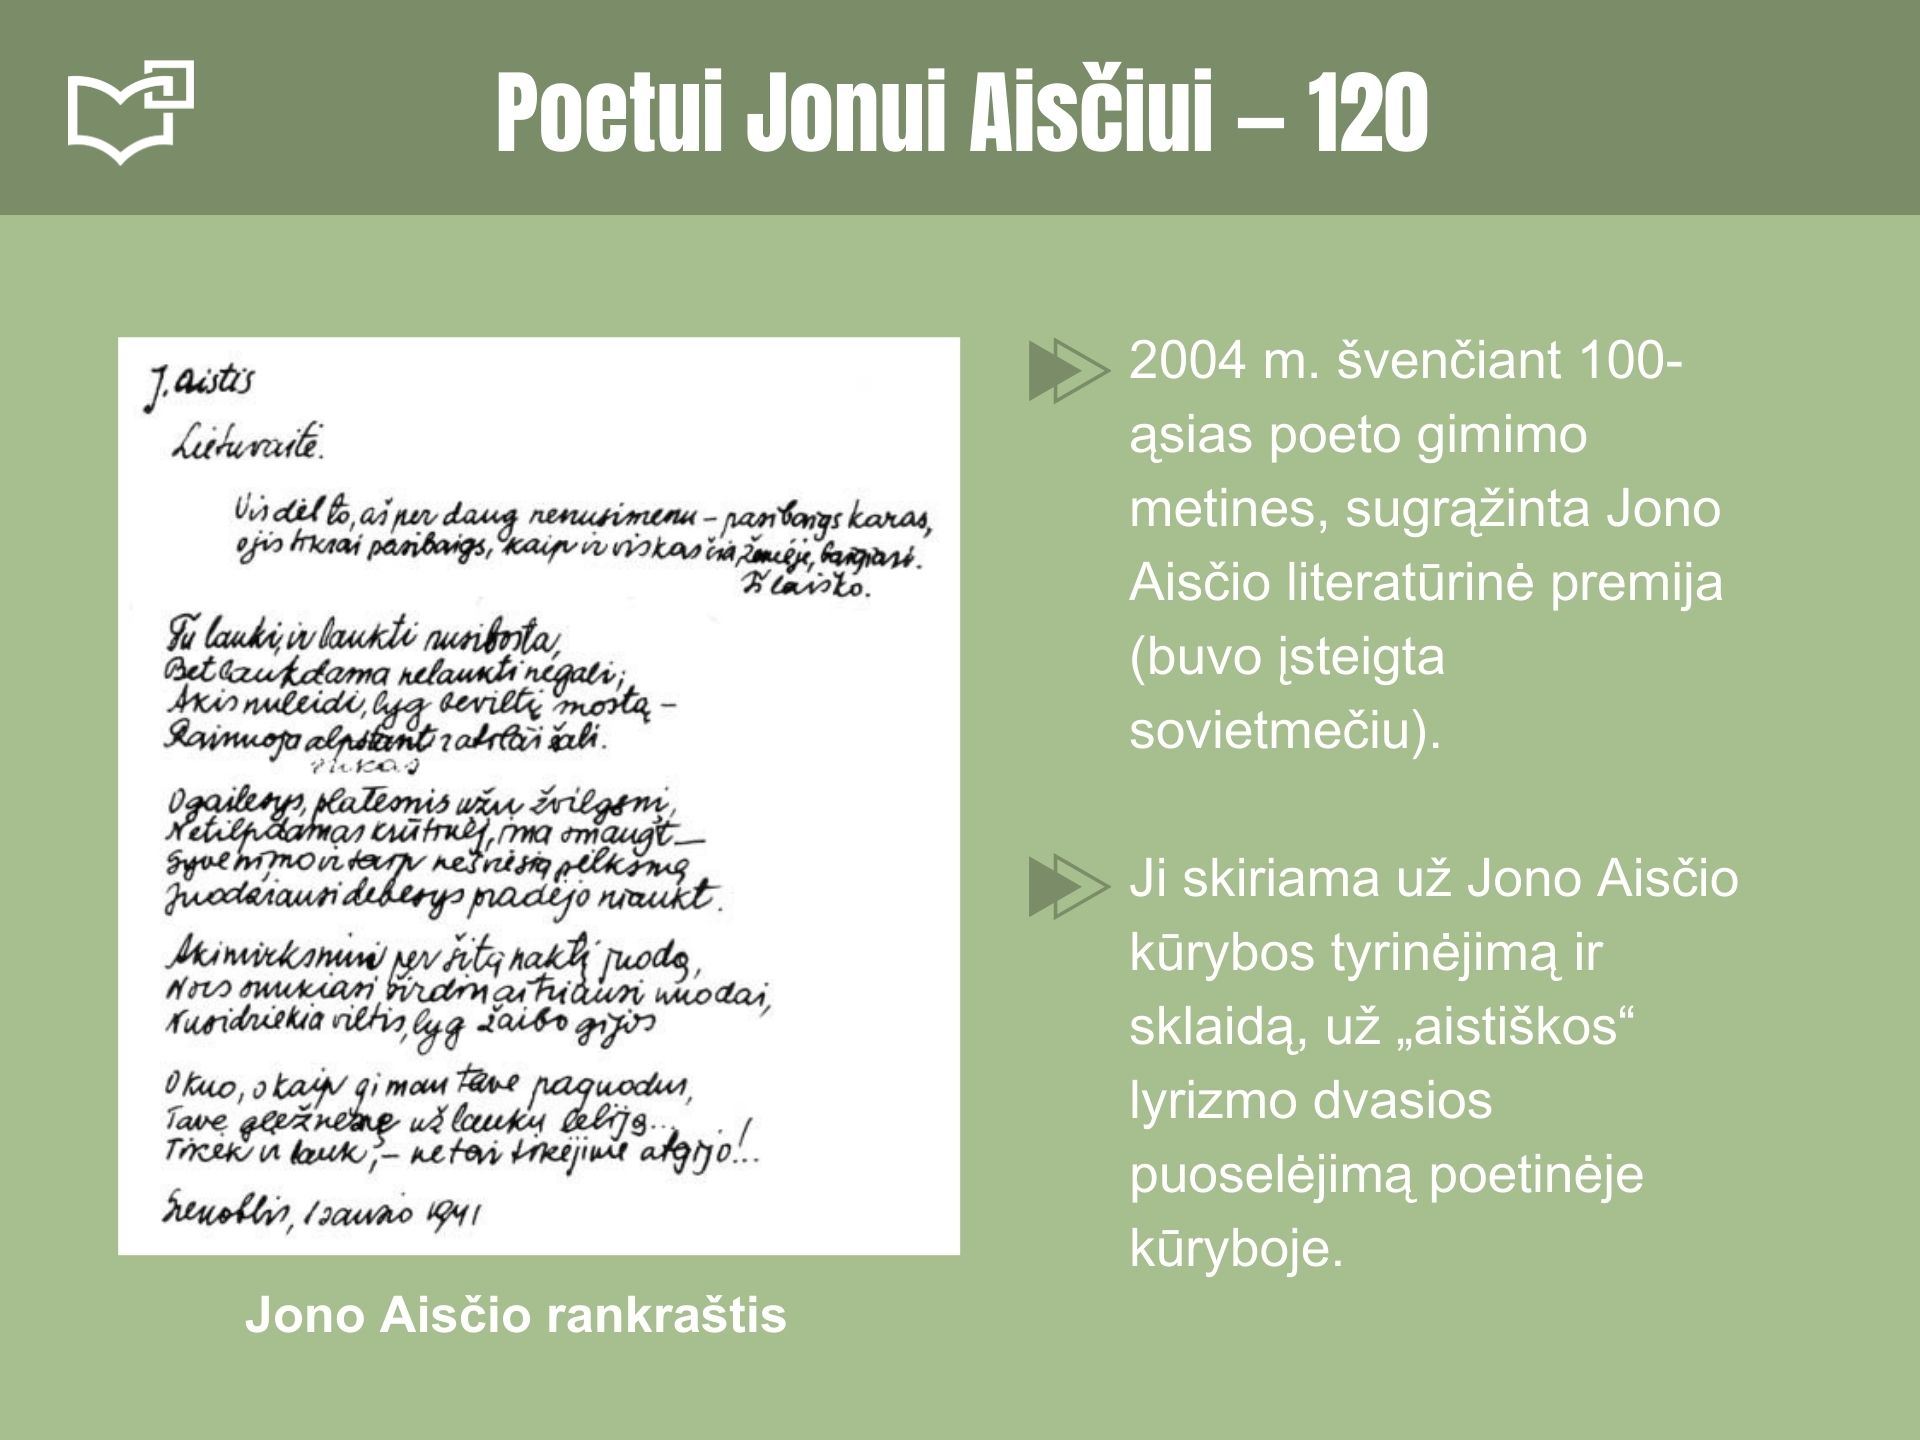 Poetui Jonui Aisčiui – 120
J. Aistis
Lietuvaitė.
Vis dėl to, aš per daug nenusimenu – pasibaigs karas,
o jis tikrai pasibaigs, kaip ir viskas čia, žemėje, baigiasi.
Iš laiško.
Tu lauki, ir laukti nusibosta,
Bet laukdama nelaukti negali;
Akis nuleidi, lyg beviltį mostą –
Rainuoja alpstanti
rukas
O gailesys, platesnis užu žvilgsnį,
Netilpdamas krūtinėj, ima smaugt –
Gyvenimo ir taip nešviesią pilksmą
Juodžiausi debesys pradėjo niaukt.
Akimirksniui per šitą naktį juodą,
Nors sunkiasi širdin aitriausi nuodai,
Nusidriekia viltis, lyg žaibo gijos
O kuo, o kaip gi man tave paguodus,
Tave gležnesnę už laukų leliją...
Tikėk ir lauk, – ne tai tikėjime atgijo!..
Grenoblis, 1 sausio 1941
Jono Aisčio rankraštis
2004 m. švenčiant 100-
ąsias poeto gimimo
metines, sugrąžinta Jono
Aisčio literatūrinė premija
(buvo įsteigta
sovietmečiu).
Ji skiriama už Jono Aisčio
kūrybos tyrinėjimą ir
sklaidą, už „aistiškos“
lyrizmo dvasios
puoselėjimą poetinėje
kūryboje.